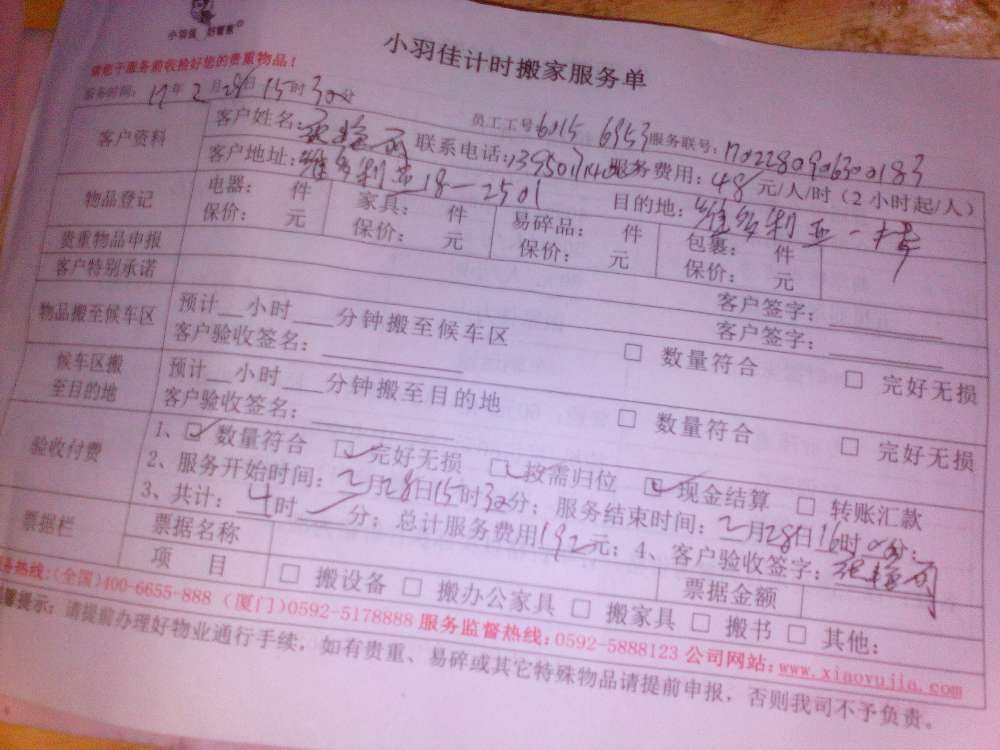 小羽佳 好管家
小羽佳计时搬家服务单
请您于服务前收拾好您的贵重物品！
服务时间：17年2月28日15时30分
员工工号6015 6953 服务联号：
客户资料 客户姓名： 联系电话： 服务费用：48元/人/时（2小时起/人）
客户地址：维多利亚18-2501 目的地：维多利亚一楼
物品登记 电器： 件 家具： 件 易碎品： 件 包裹： 件
保价： 元 保价： 元 保价： 元 保价： 元
贵重物品申报 客户签字：
客户特别承诺 客户签字：
物品搬至候车区 预计 小时 分钟搬至候车区 □ 数量符合 □ 完好无损
客户验收签名：
候车区搬至目的地 预计 小时 分钟搬至目的地 □ 数量符合 □ 完好无损
客户验收签名：
验收付费 1、☑数量符合 ☑完好无损 ☑按需归位 ☑现金结算 □ 转账汇款
2、服务开始时间：2月28日15时30分；服务结束时间：2月28日16时 分；
3、共计：4时 分；总计服务费用192元；4、客户验收签字：
票据栏 票据名称 票据金额
项 目 □ 搬设备 □ 搬办公家具 □ 搬家具 □ 搬书 □ 其他：
务热线：(全国)400-6655-888 (厦门)0592-5178888 服务监督热线：0592-5888123 公司网站：www.xiaoyujia.com
提示：请提前办理好物业通行手续，如有贵重、易碎或其它特殊物品请提前申报，否则我司不予负责。